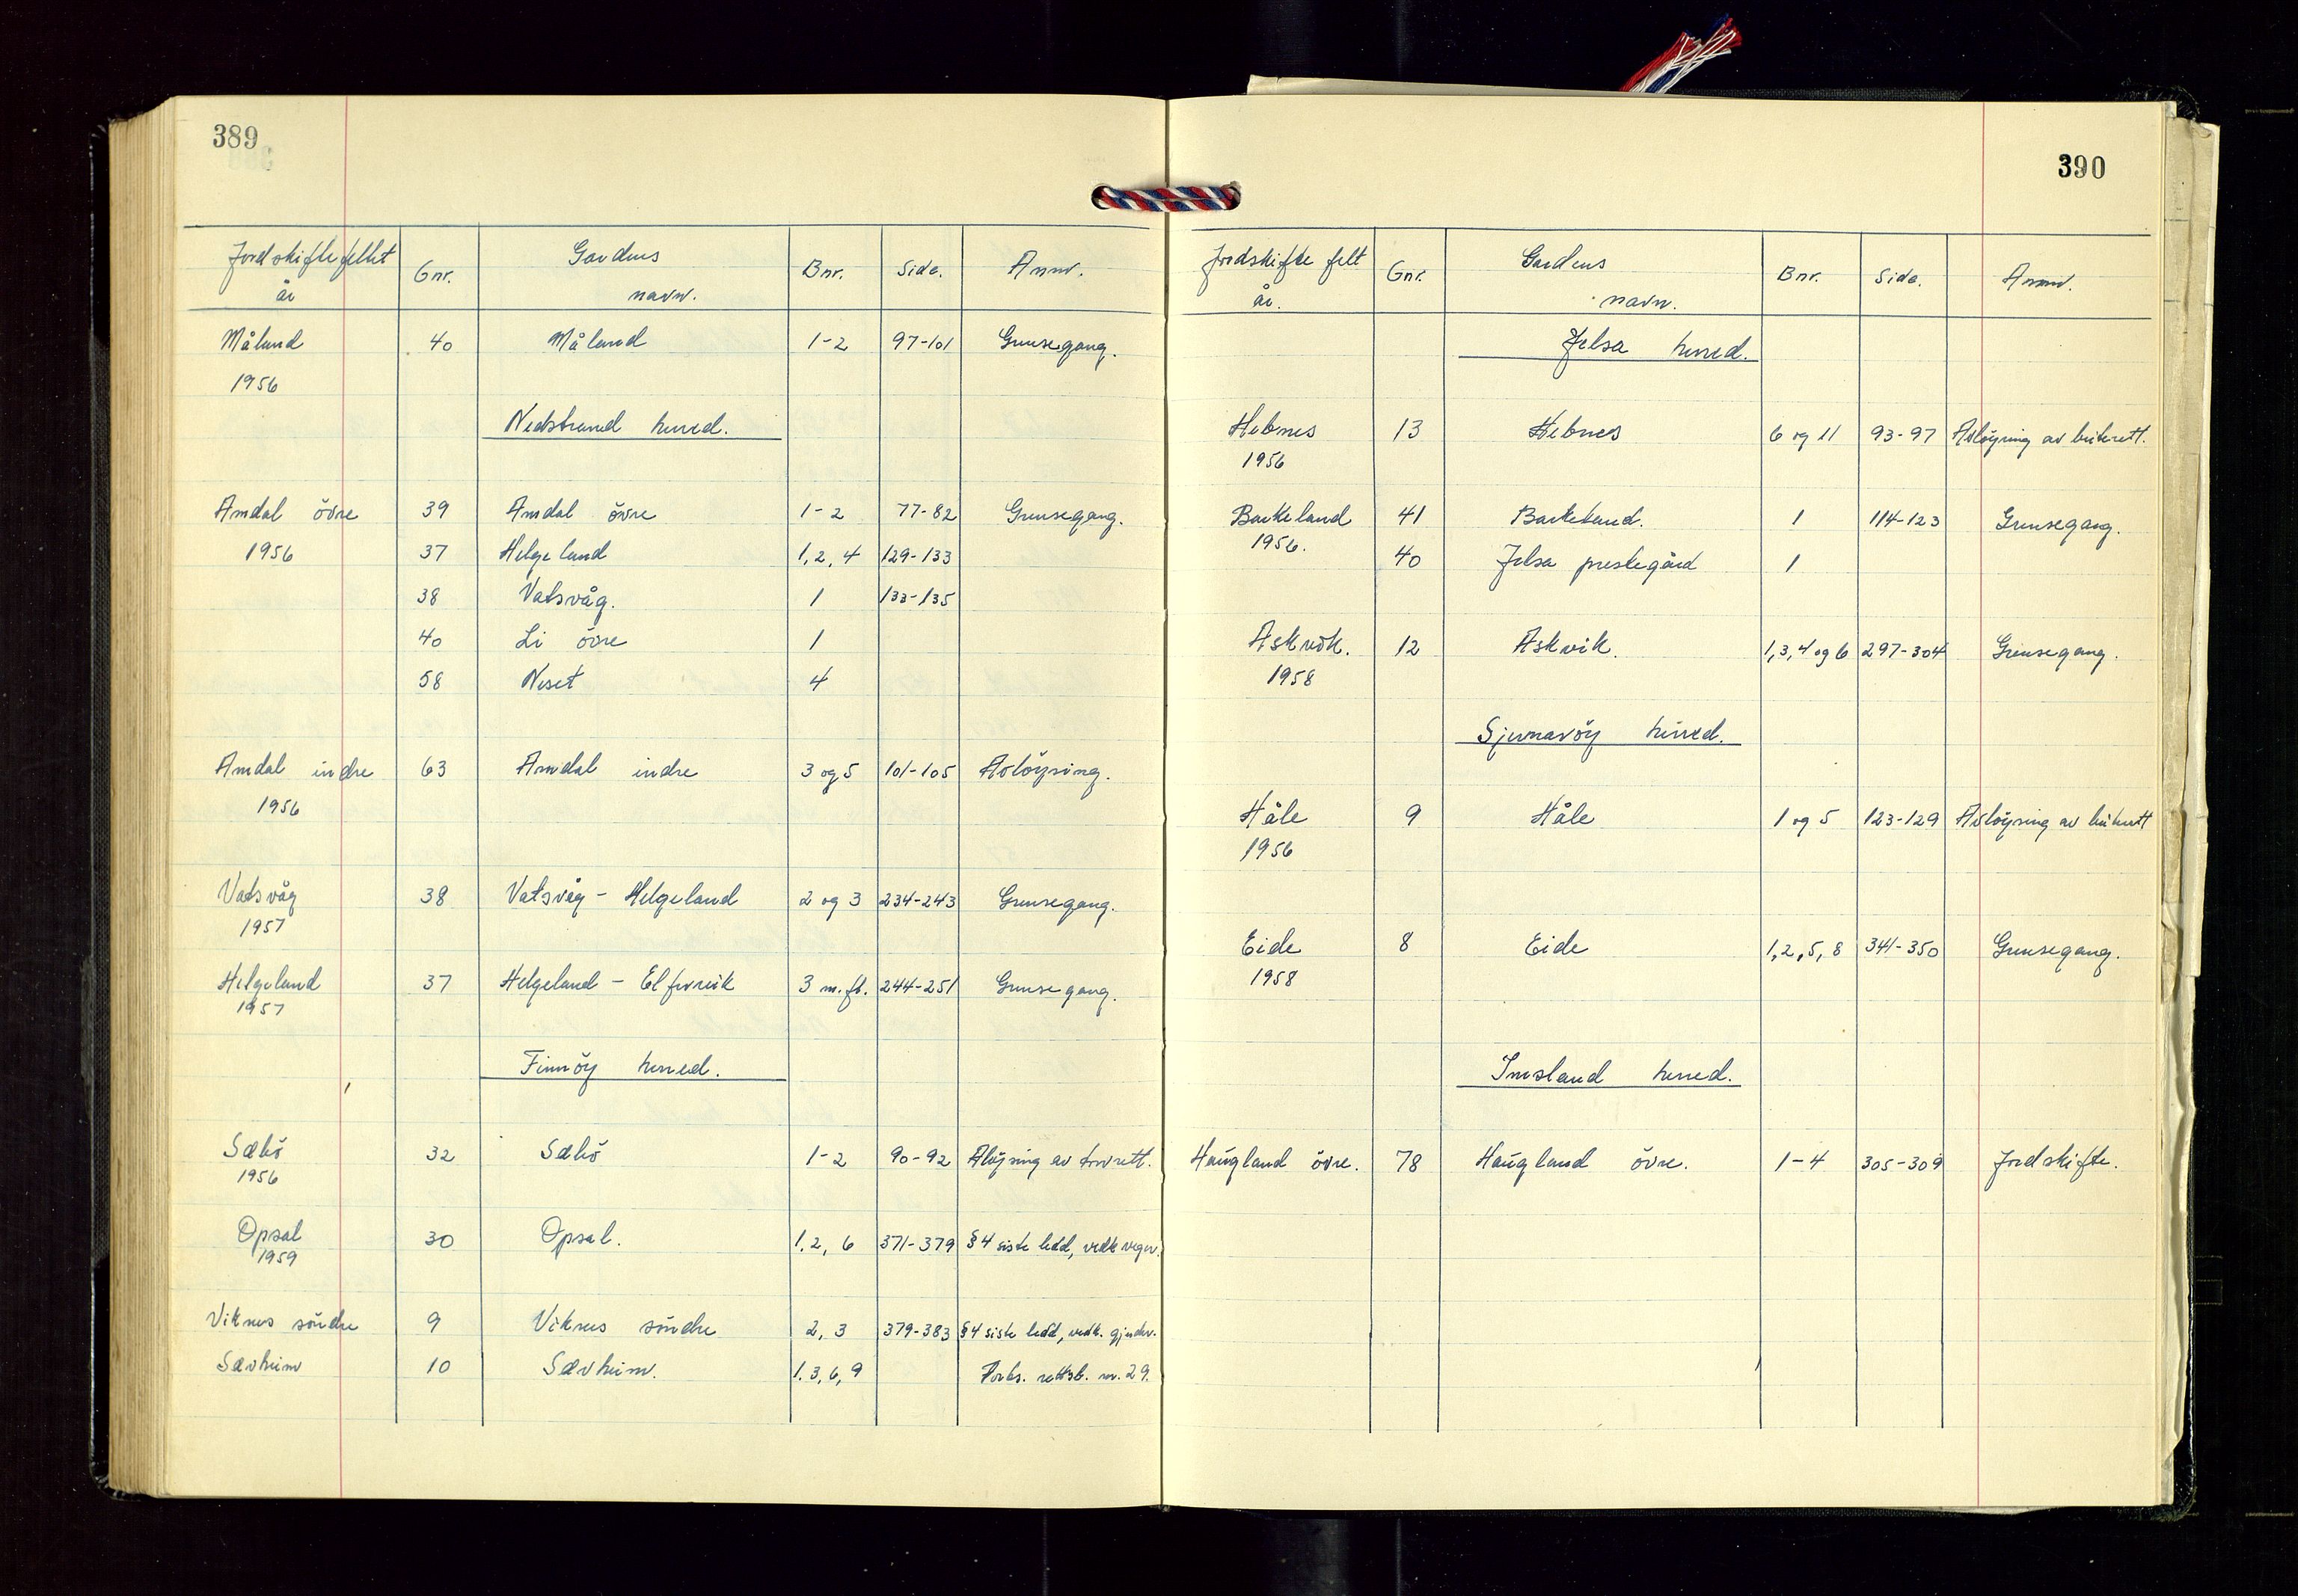 389
Jordskiftefeltet år	Gnr.	Gardens navn.	Bnr.	Side.	Anm.
Måland	40	Måland	1-2	97-101	Grensegang.
1956
Nedstrand herred.
Amdal övre	39	Amdal övre	1-2	77-82	Grensegang.
1956	37	Helgeland	1, 2, 4	129-133
38	Vatsvåg.	1	133-135
40	Li övre	1
58	Neset	4
Amdal indre	63	Amdal indre	3 og 5	101-105	Avlöysing.
1956
Vatsvåg	38	Vatsvåg - Helgeland	2 og 3	234-243	Grensegang.
1957
Helgeland	37	Helgeland -	3 m.fl.	244-251	Grensegang.
1957
Finnöy herred.
Sæbö	32	Sæbö	1-2	90-92	Alöysing av torvrett.
1956
Opsal	30	Opsal.	1, 2, 6	371-379	§ 4 siste ledd, vedk veger.
1959
Viknes söndre	9	Viknes söndre	2, 3	379-383	§ 4 siste ledd, vedk. gjerder.
Sævheim	10	Sævheim.	1, 3, 6, 9	Forts. rettsb. nr. 29.
390
Jordskifte felt år.	Gnr.	Gardens navn.	Bnr.	Side.	Anm.
Jelsa herred.
Hebnes	13	Hebnes	6 og 11	93-97	Avlöysing av beiterett.
1956
Barkeland	41	Barkeland.	1	114-123	Grensegang.
1956.	40	Jelsa prestegård	1
Askvik.	12	Askvik.	1, 3, 4 og 6	297-304	Grensegang.
1958
Sjernaröy herred.
Håle	9	Håle	1 og 5	123-129	Avlöysing av beiterett
1956
Eide	8	Eide	1, 2, 5, 8	341-350	Grensegang.
1958
Imsland herred.
Haugland övre.	78	Haugland övre.	1-4	305-309	Jordskifte.